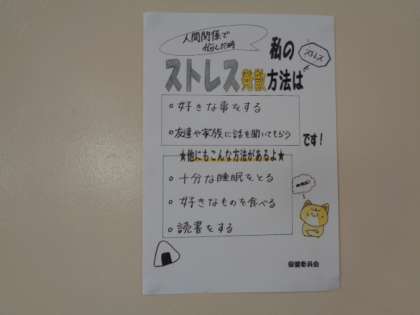 人間関係で
悩んだ時
私の
ストレス
ストレス発散方法は
・好きな事をする
・友達や家族に話を聞いてもらう
です!
★他にもこんな方法があるよ★
・十分な睡眠をとる
・好きなものを食べる
・読書をする
保健委員会